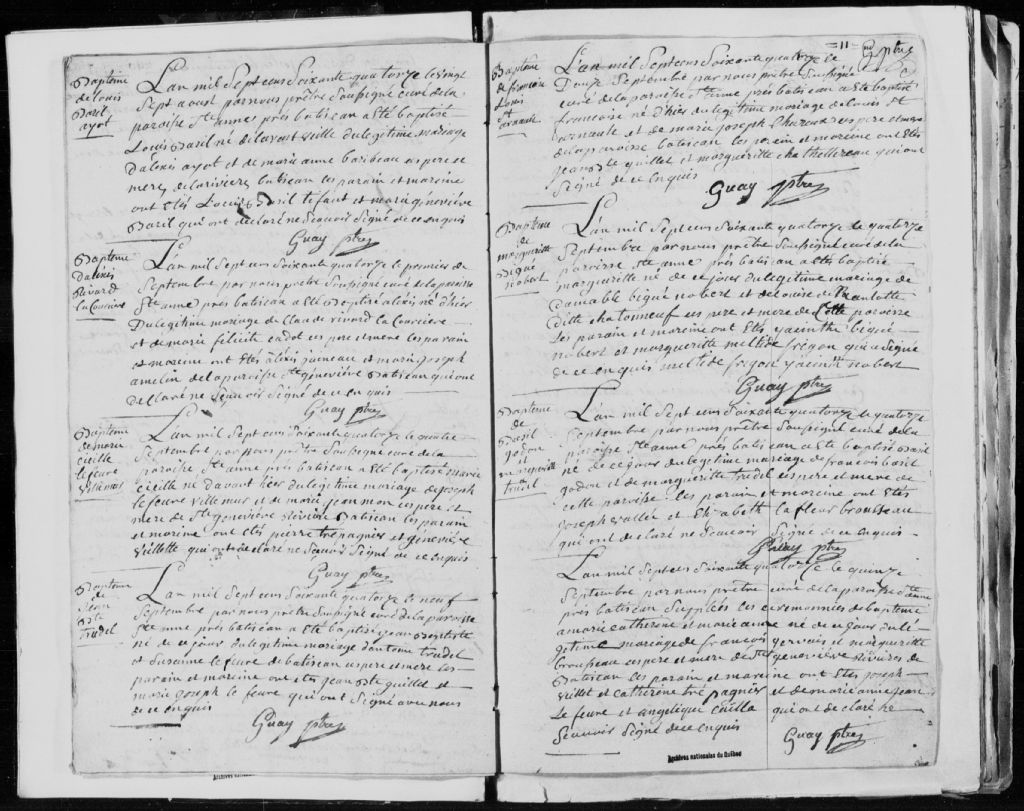 Baptême
de Louis
Basil
ayot
L'an mil Sept cens Soixante quatorze le vingt
Sept aoust par nous prêtre Soussigné curé de la
paroisse Ste anne près batiscan a Eté baptisé
Louis Basil né de la veille du legitime mariage
D'alexis ayot et de marie anne baribeau es pere et
mere de la riviere batiscan les parain et mareine
ont Etés Louis Basil et marie geneviéve
Baril qui ont declaré ne Scavoir Signé de ce Enquis
Guay ptre
Baptême
D'alexis
Rivard
La Couriere
L'an mil Sept cens Soixante quatorze le premier de
Septembre par nous prêtre Soussigné curé de la paroisse
Ste anne près batiscan a Eté Baptisé alexis né d'hier
Du legitime mariage de Claude rivard la Couriere
et de marie felicité cadot es pere et mere les parain
et mareine ont Etés alexis et marie joseph
amelin de la paroisse Ste geneviéve Batiscan qui ont
Declaré ne Scavoir Signé de ce enquis
Guay ptre
Baptême
de marie
cicille
le feuve
Villemur
L'an mil Sept cens Soixante quatorze le
Septembre par nous prêtre Soussigné curé de la
paroisse Ste anne près batiscan a Eté baptisé marie
cicille né d'avant hier du legitime mariage de joseph
le feuve Villemur et de marie jean mon es pere et
mere de Ste geneviéve Riviere Batiscan les parain
et mareine ont Etés pierre trepagnés et geneviéve
Veillette qui ont declaré ne Scavoir Signé de ce enquis
Guay ptre
Baptême
de
Jean
Bte
Trudel
L'an mil Sept cens Soixante quatorze le neuf
Septembre par nous prêtre Soussigné curé de la paroisse
Ste anne près batiscan a Eté baptisé jean Baptiste
né de ce jour du legitime mariage d'antoine trudel
et Susanne le feuve de batiscan es pere et mere les
parain et mareine ont Etés jean Bte guillet et
marie joseph le feuve qui ont Signé avec nous
de ce enquis
Guay ptre
Archives
= 11 = Guay ptre
Baptême
de francoise
Louis
St
arnault
L'an mil Sept cens Soixante quatorze le
Douze Septembre par nous prêtre Soussigné
curé de la paroisse Ste anne près batiscan a Eté baptisé
francoise né d'hier du legitime mariage de Louis St
arnault et de marie joseph es pere et mere
de la paroisse batiscan les parain et mareine ont Etés
jean Bte guillet et margueritte chathellereau qui ont
Signé de ce enquis
Guay ptre
Baptême
de
margueritte
Bigué
nobert
L'an mil Sept cens Soixante quatorze le quatorze
Septembre par nous prêtre Soussigné curé de la
paroisse Ste anne près batiscan a Etés baptisé
margueritte né de ce jour du legitime mariage de
D'aimable bigué nobert et de Louise
Ditte chatonneuf es pere et mere de Cette paroisse
Les parain et mareine ont Etés yacinthe bigué
nobert et margueritte de frigon qui a Signé
de ce enquis de frigon yacinth nobert
Guay ptre
Baptême
de
Basil
godon
et
margueritte
trudel
L'an mil Sept cens Soixante quatorze le quatorze
Septembre par nous prêtre Soussigné curé de la
paroisse Ste anne près batiscan a Eté baptisé basil
né de ce jour du legitime mariage de francois basil
godon et de margueritte trudel es pere et mere de
cette paroisse les parain et mareine ont Etés
joseph vallée et Elizabeth la fleur brousseau
qui ont declaré ne Scavoir Signé de ce enquis
Guay ptre
L'an mil Sept cens Soixante quatorze le quinze
Septembre par nous prêtre curé de la paroisse Ste anne
près batiscan Supplées les ceremonnies de baptême
a marie catherine et marie anne né de ce jour du lé-
gitime mariage de francois gervais et margueritte
brousseau es pere et mere de Ste geneviéve Riviere de
Batiscan les parain et mareine ont Etés joseph
Veillet et catherine trepagniés et de marie anne jean
Le feuve et angelique qui ont declaré ne
Scavoir Signé de ce enquis
Guay ptre
Archives nationales du Québec